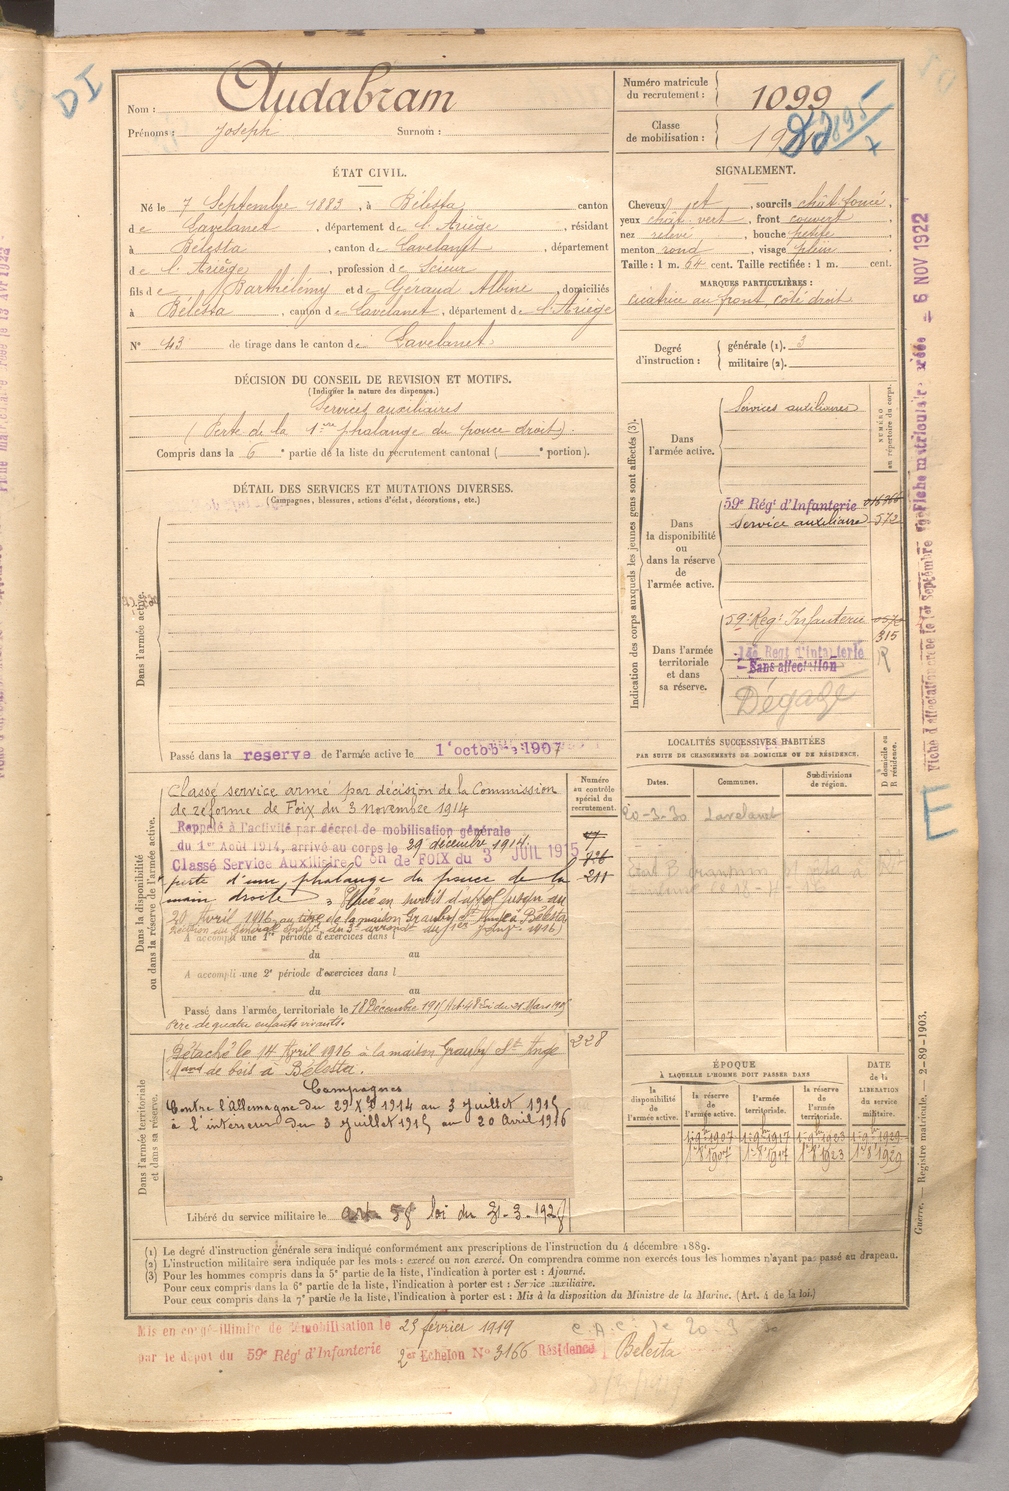 DI
Nom : Audabram
Prénoms : Joseph Surnom :
Numéro matricule du recrutement : 1099
Classe de mobilisation : 19
ÉTAT CIVIL.
Né le 7 Septembre 1883, à Bélesta, canton
de Lavelanet, département de l'Ariège, résidant
à Bélesta, canton de Lavelanet, département
de l'Ariège, profession de Scieur
fils de Barthélémy et de Géraud Albine, domiciliés
à Bélesta, canton de Lavelanet, département de l'Ariège
N° 43 de tirage dans le canton de Lavelanet.
SIGNALEMENT.
Cheveux jet, sourcils chât foncé,
yeux chât. vert, front couvert,
nez relevé, bouche petite,
menton rond, visage plein.
Taille : 1 m. 64 cent. Taille rectifiée : 1 m. cent.
MARQUES PARTICULIÈRES :
cicatrice au front, côté droit
Degré d'instruction : générale (1). 3
militaire (2).
DÉCISION DU CONSEIL DE REVISION ET MOTIFS.
(Indiquer la nature des dispenses.)
Services auxiliaires
(Perte de la 1re phalange du pouce droit).
Compris dans la 6e partie de la liste du recrutement cantonal ( e portion).
DÉTAIL DES SERVICES ET MUTATIONS DIVERSES.
(Campagnes, blessures, actions d'éclat, décorations, etc.)
Dans l'armée active.
Passé dans la reserve de l'armée active le 1er octobre 1907
Indication des corps auxquels les jeunes gens sont affectés (3).
NUMÉRO au répertoire du corps.
Dans l'armée active.
Services auxiliaires
Dans la disponibilité ou dans la réserve de l'armée active.
59e Régt d'Infanterie
Service auxiliaire 572
Dans l'armée territoriale et dans sa réserve.
59e Régt Infanterie
315
Régt d'Infanterie R
Sans affectation
Dégagé
LOCALITÉS SUCCESSIVES HABITÉES
PAR SUITE DE CHANGEMENTS DE DOMICILE OU DE RÉSIDENCE.
Dates. Communes. Subdivisions de région. D domicile ou R résidence.
20-3-30 Lavelanet
Dans la disponibilité ou dans la réserve de l'armée active.
Numéro au contrôle spécial du recrutement.
Classé service armé par décision de la Commission
de réforme de Foix du 3 novembre 1914
Rappelé à l'activité par décret de mobilisation générale
du 1er Août 1914, arrivé au corps le 29 décembre 1914.
Classé Service Auxiliaire Con de FOIX du 3 JUIL 1915
perte d'une phalange du pouce de la 211
main droite. Placé en sursis d'appel jusqu'au
20 Avril 1916, au titre de la maison Grauby St Ange à Bélesta
A accompli une 1re période d'exercices dans l
du au
A accompli une 2e période d'exercices dans l
du au
Passé dans l'armée territoriale le 18 Décembre 1915 Art. 48 Loi du 21 Mars 1905
Père de quatre enfants vivants.
Dans l'armée territoriale et dans sa réserve.
Détaché le 14 Avril 1916 à la maison Grauby St Ange 228
Mand de bois à Bélesta.
Campagnes
Contre l'Allemagne du 29 Xbre 1914 au 3 Juillet 1915
à l'intérieur du 3 Juillet 1915 au 20 Avril 1916
Libéré du service militaire le art 58 loi du 31-3-1928
ÉPOQUE
À LAQUELLE L'HOMME DOIT PASSER DANS
la disponibilité de l'armée active. la réserve de l'armée active. l'armée territoriale. la réserve de l'armée territoriale. DATE de la LIBÉRATION du service militaire.
1-9bre 1907 1-9-1917 1-9-1923 1-9-1929
1-8-1907 1-8-1917 1-8-1923 1-8-1929
(1) Le degré d'instruction générale sera indiqué conformément aux prescriptions de l'instruction du 4 décembre 1889.
(2) L'instruction militaire sera indiquée par les mots : exercé ou non exercé. On comprendra comme non exercés tous les hommes n'ayant pas passé au drapeau.
(3) Pour les hommes compris dans la 5e partie de la liste, l'indication à porter est : Ajourné.
Pour ceux compris dans la 6e partie de la liste, l'indication à porter est : Service auxiliaire.
Pour ceux compris dans la 7e partie de la liste, l'indication à porter est : Mis à la disposition du Ministre de la Marine. (Art. 4 de la loi.)
Mis en congé illimité de démobilisation le 25 février 1919
par le dépôt du 59e Régt d'Infanterie 2e Échelon N° 3166 Résidence Bélesta
Guerre. — Registre matricule. — 2-89-1903.
E
6 NOV 1922